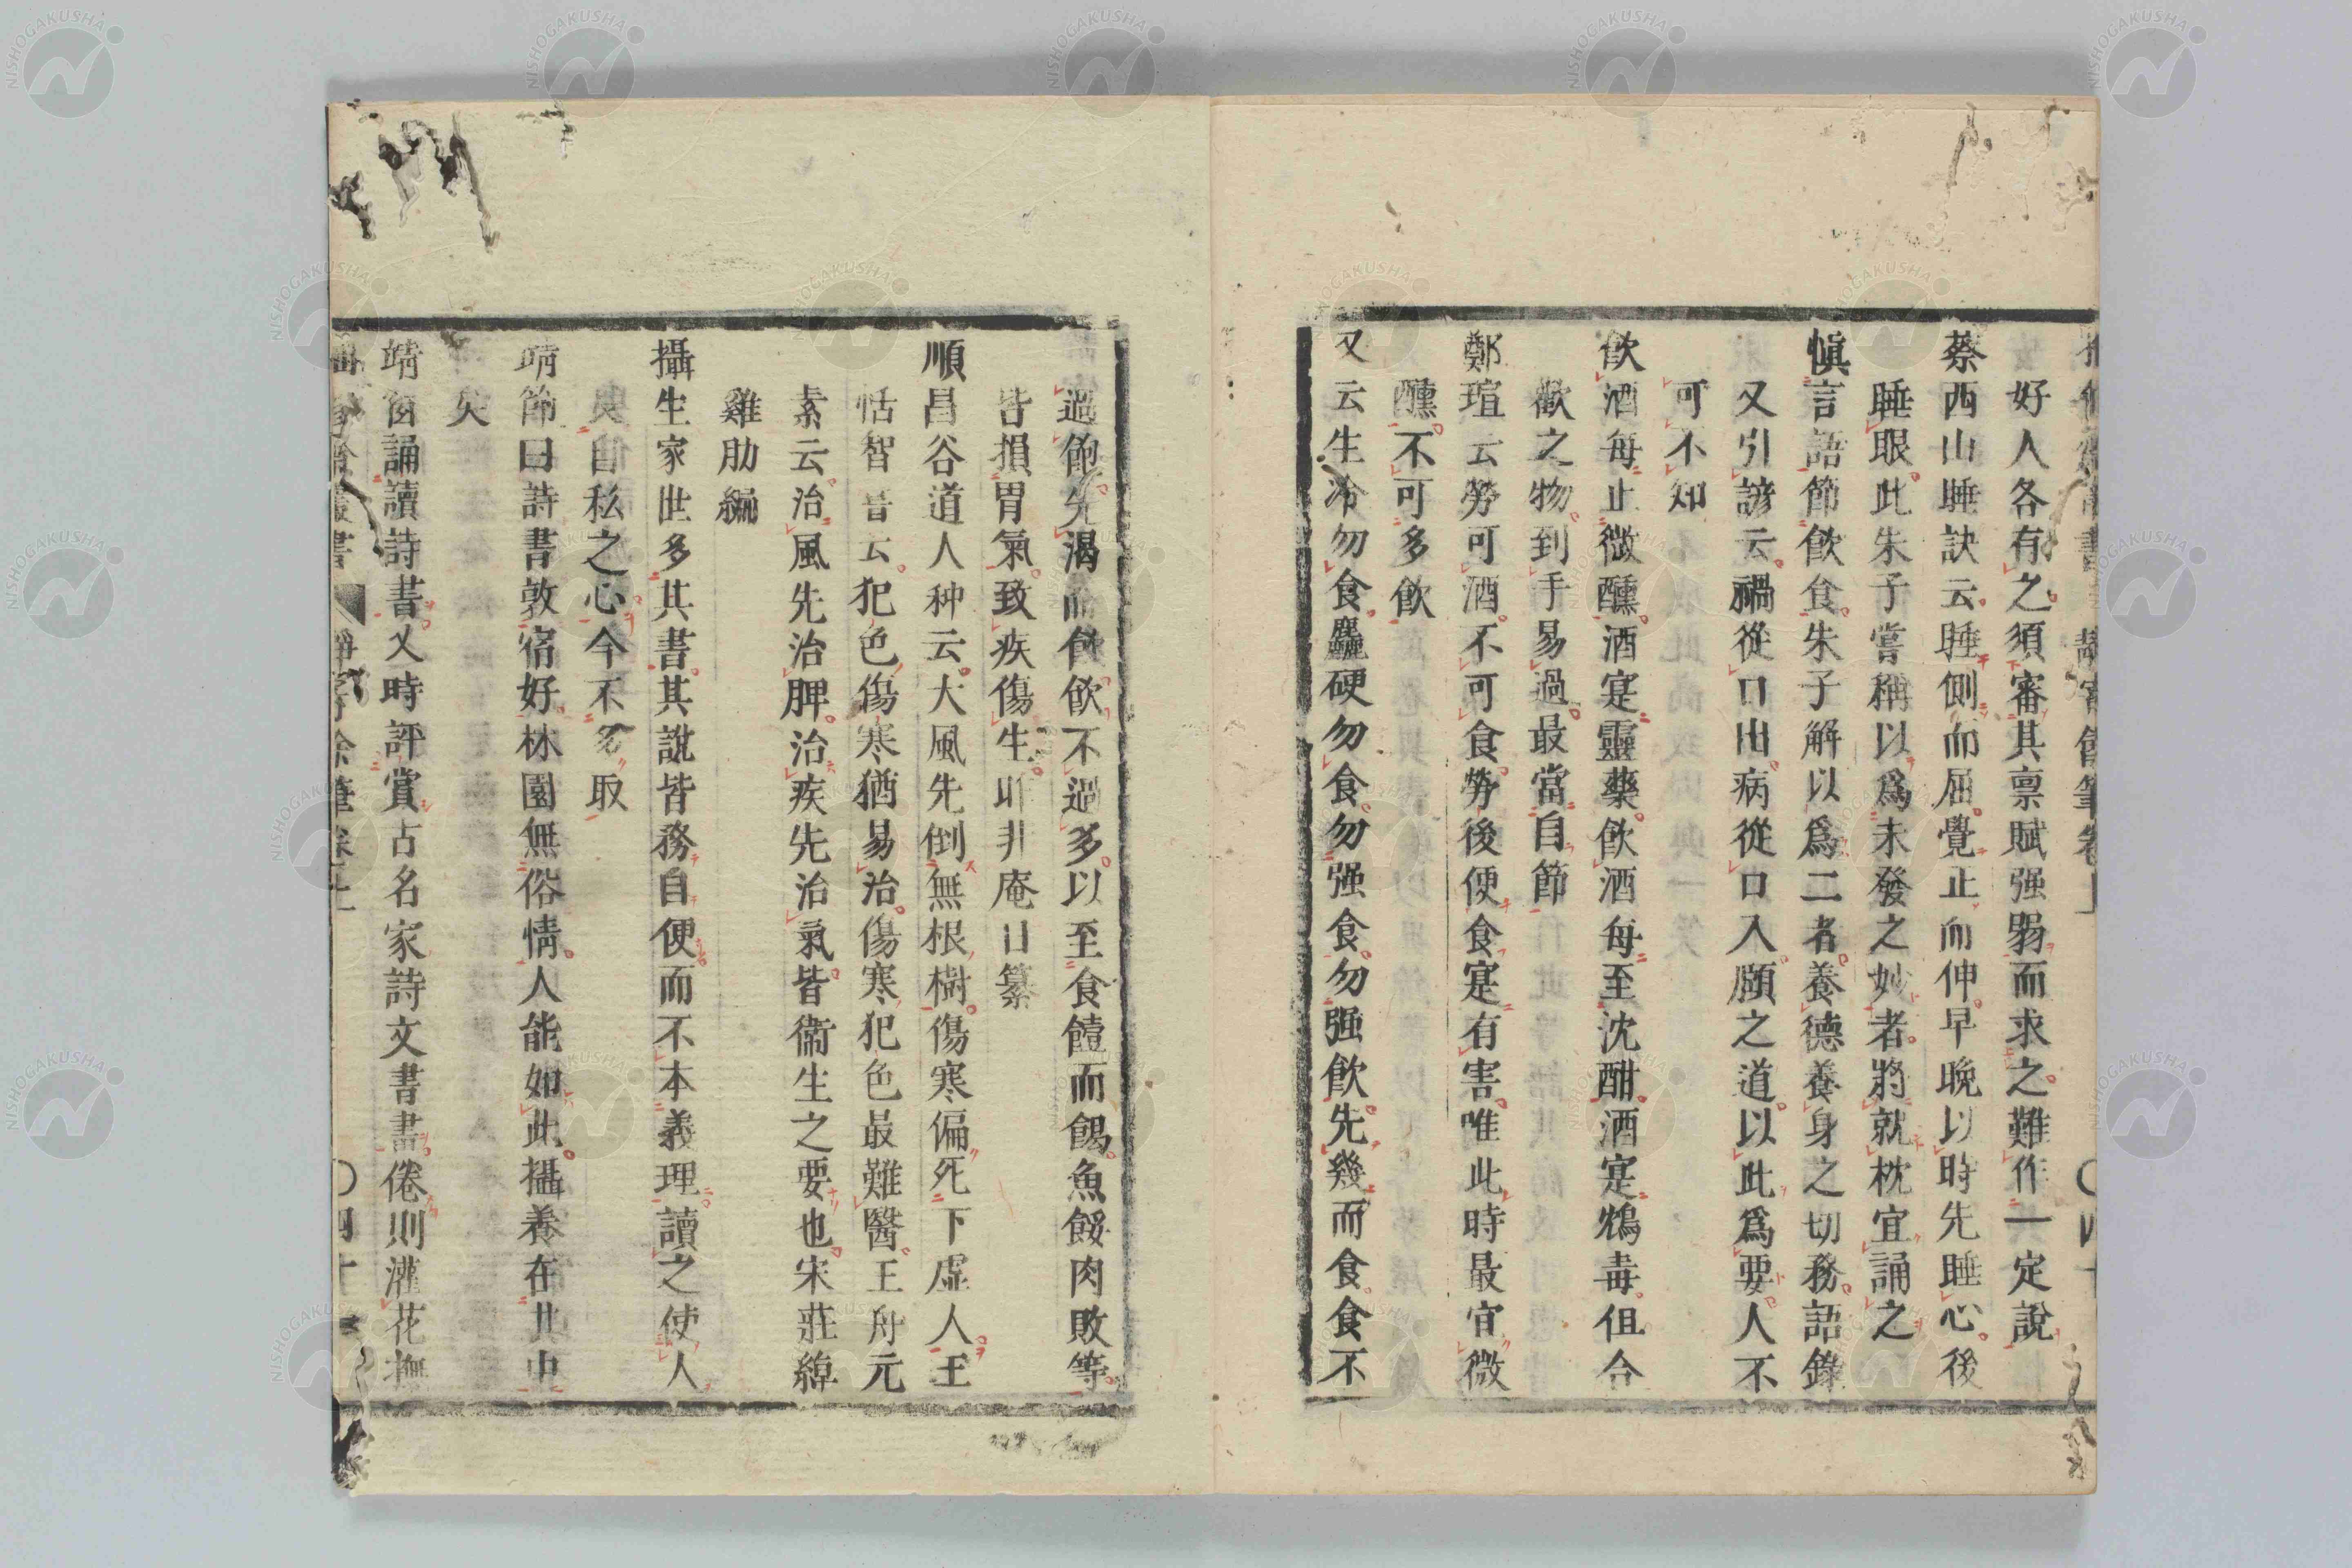 好人各有之須審其稟賦强弱而求之難作一定說
蔡西山睡訣云睡側而屈覺止而伸早晚以時先睡心後
睡眼此朱子嘗稱以爲未發之妙者將就枕宜誦之
愼言語節飮食朱子解以爲二者養德養身之切務語錄
又引諺云禍從口出病從口入頤之道以此爲要人不
可不知
飮酒每止微醺酒寔靈藥飮酒每至沈酣酒寔鴆毒但合
歡之物到手易過最當自節
鄭瑄云勞可酒不可食勞後便食寔有害唯此時最宜微
醺不可多飮
又云生冷勿食麤硬勿食勿强食勿强飮先幾而食食不
過飽先渴而飮飮不過多以至食饐而餲魚餒肉敗等
皆損胃氣致疾傷生 非庵日纂
順昌谷道人种云大風先倒無根樹傷寒偏死下虛人王
恬智昔云犯色傷寒猶易治傷寒犯色最難醫王舟元
素云治風先治脾治疾先治氣皆衞生之要也宋莊綽
雞肋編
攝生家世多其書其說皆務自便而不本義理讀之使人
臭自私之心今不多取
靖節曰詩書敦宿好林園無俗情人能如此攝養在其中
矣
靖窗誦讀詩書又時評賞古名家詩文書畫倦則灌花撫
NISHOGAKUSHA